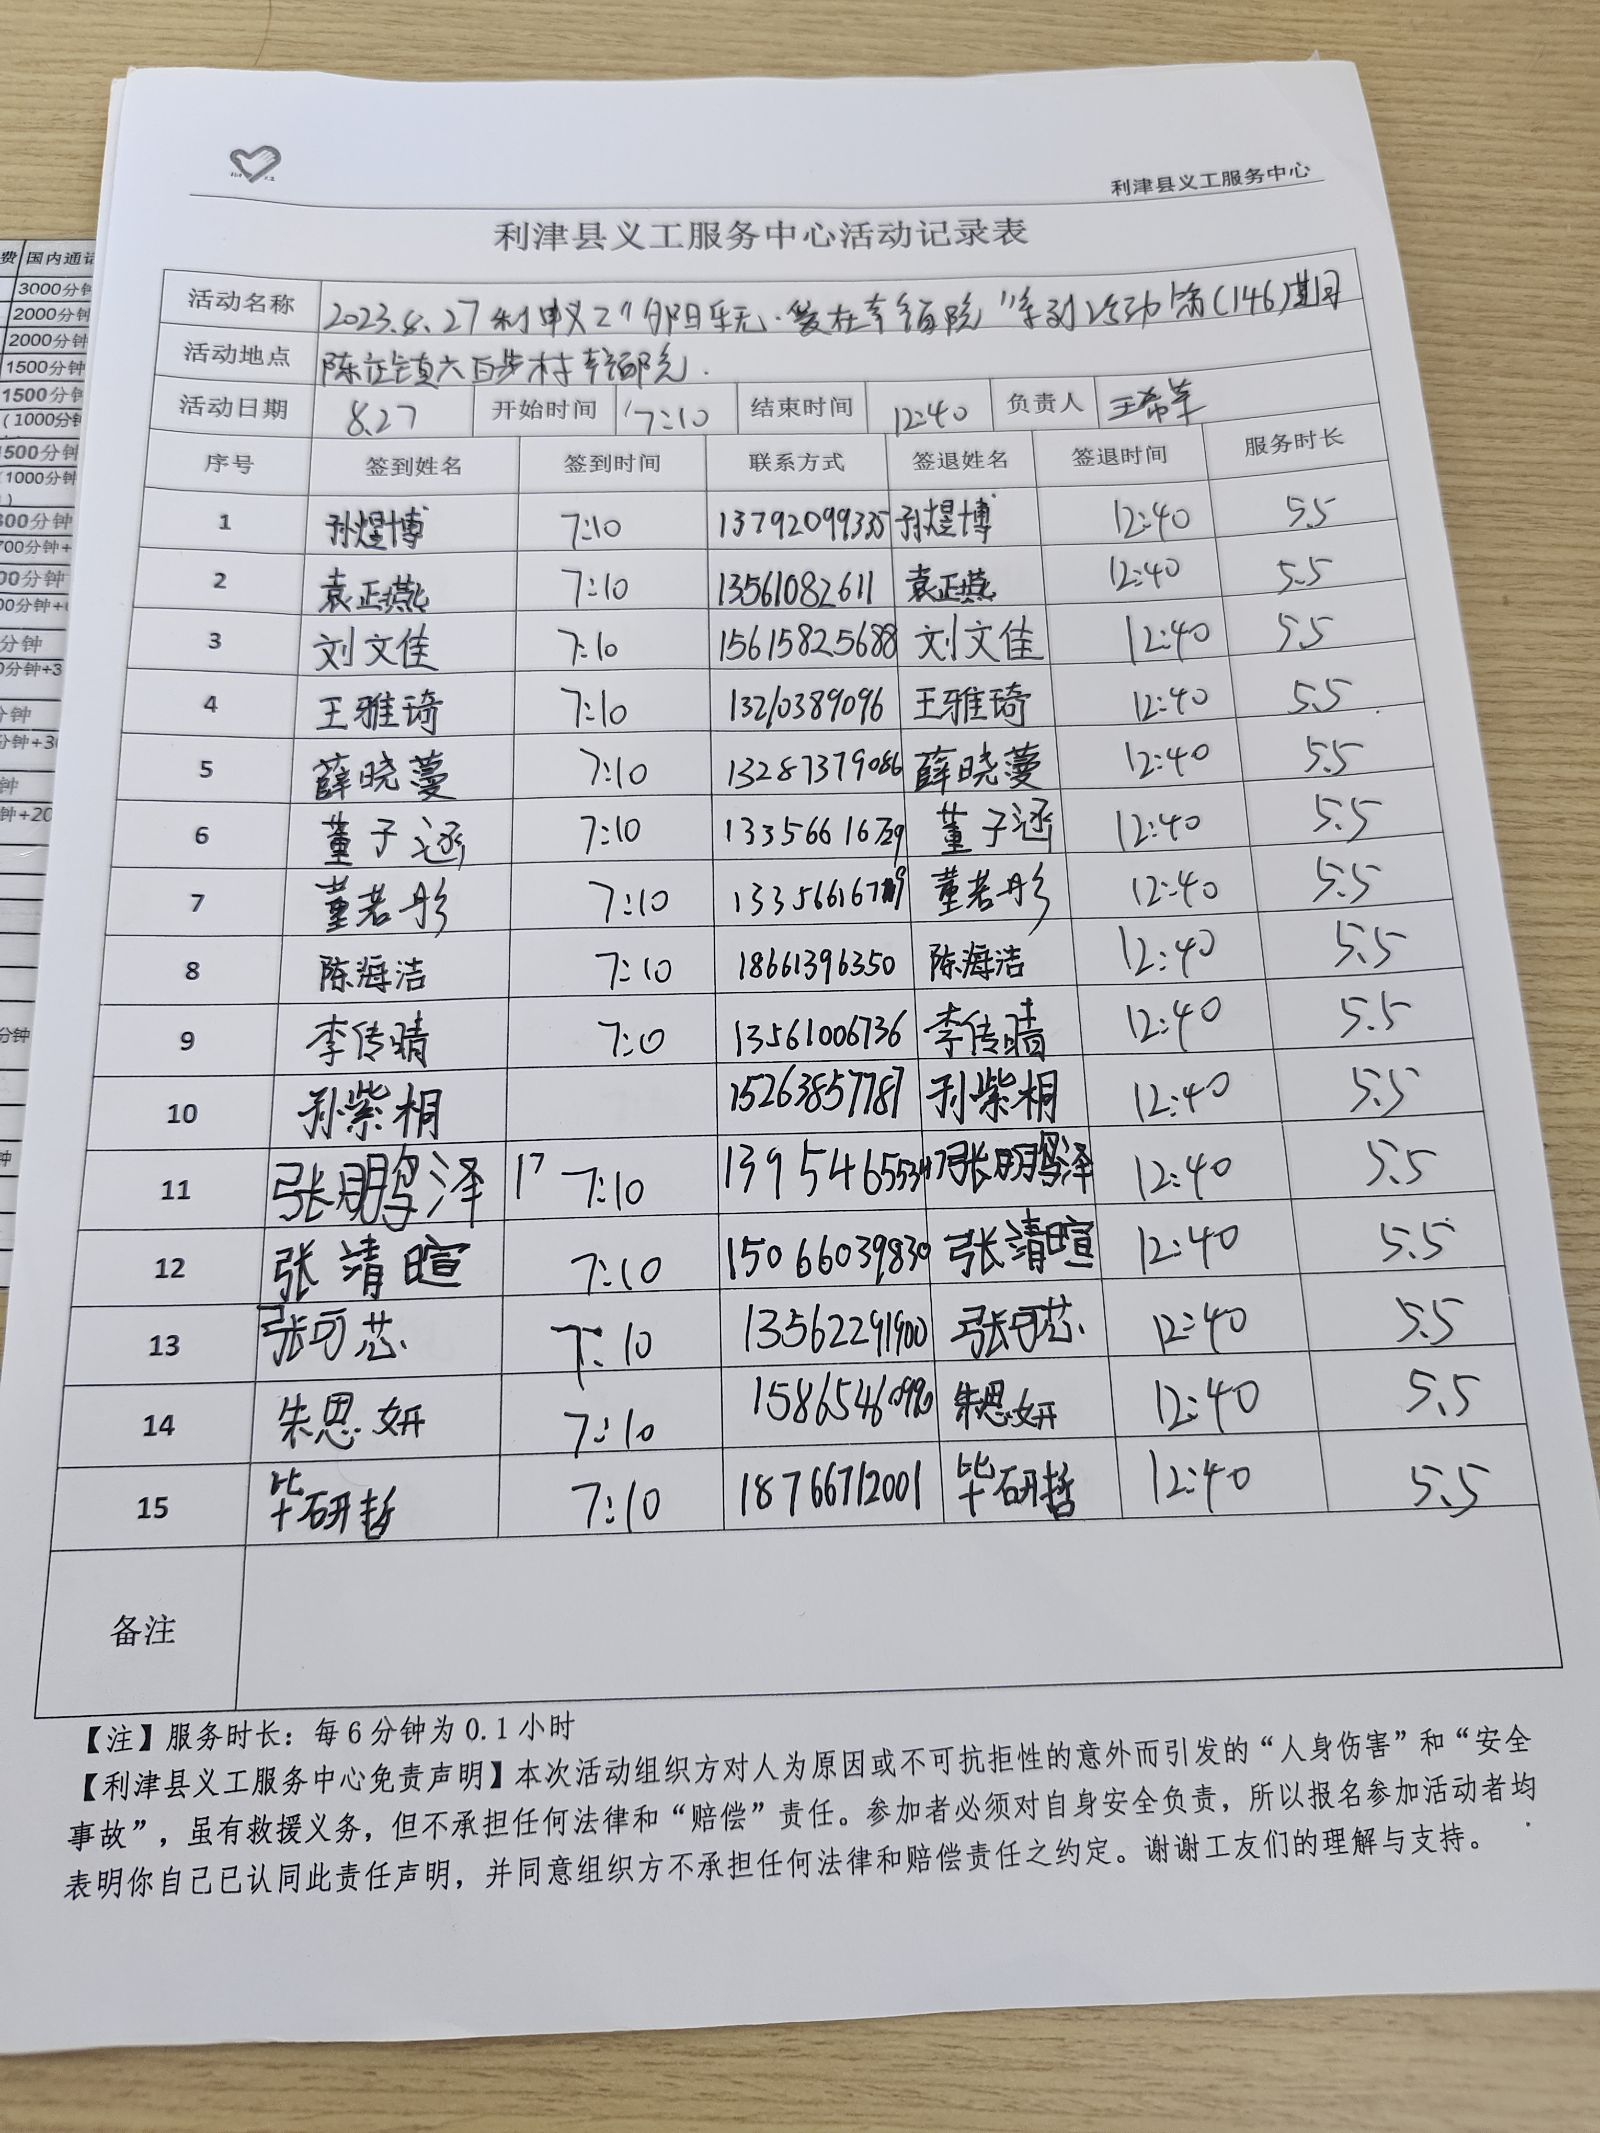 利津县义工服务中心
利津县义工服务中心活动记录表
活动名称 2023.8.27利津义工“夕阳乐无·爱在幸福院”系列活动第(146)期
活动地点 陈庄镇六百步村幸福院.
活动日期 8.27 开始时间 7:10 结束时间 12:40 负责人 王希苹
序号 签到姓名 签到时间 联系方式 签退姓名 签退时间 服务时长
1 孙煜博 7:10 13792099335 孙煜博 12:40 5.5
2 袁正燕 7:10 13561082611 袁正燕 12:40 5.5
3 刘文佳 7:10 15615825688 刘文佳 12:40 5.5
4 王雅琦 7:10 13210389096 王雅琦 12:40 5.5
5 薛晓蔓 7:10 13287379086 薛晓蔓 12:40 5.5
6 董子涵 7:10 董子涵 12:40 5.5
7 董若彤 7:10 董若彤 12:40 5.5
8 陈海洁 7:10 18661396350 陈海洁 12:40 5.5
9 李传晴 7:10 13561006736 李传晴 12:40 5.5
10 孙紫桐 15263857787 孙紫桐 12:40 5.5
11 张鹏泽 17 7:10 张鹏泽 12:40 5.5
12 张清暄 7:10 15066039830 张清暄 12:40 5.5
13 张可芯 7:10 13562291900 张可芯 12:40 5.5
14 朱思妍 7:10 朱思妍 12:40 5.5
15 毕研哲 7:10 18766712001 毕研哲 12:40 5.5
备注
【注】服务时长：每6分钟为0.1小时
【利津县义工服务中心免责声明】本次活动组织方对人为原因或不可抗拒性的意外而引发的“人身伤害”和“安全
事故”，虽有救援义务，但不承担任何法律和“赔偿”责任。参加者必须对自身安全负责，所以报名参加活动者均
表明你自己已认同此责任声明，并同意组织方不承担任何法律和赔偿责任之约定。谢谢工友们的理解与支持。
费 国内通话
3000分钟
2000分钟
2000分钟
1500分钟
1500分钟
(1000分钟
1500分钟
(1000分钟